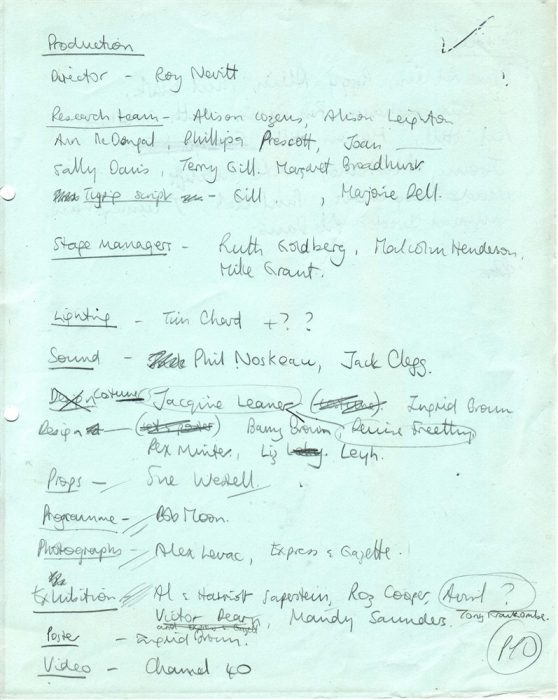 Production
Director - Roy Nevitt
Research team - Alison Cozens, Alison Leighton
Ann McDongal, Phillipa Prescott, Joan
Sally Davis, Terry Gill. Margaret Broadhurst
Typing script - Gill , Marjorie Dell.
Stage Managers - Ruth Goldberg, Malcolm Henderson,
Mike Grant.
Lighting - Tim Chard + ? ?
Sound - Phil Noskeau, Jack Clegg.
Design Costumes Jacquine Leaner Ingrid Brown
Design Barry Brown, Denise Freetthy
Rex Minter, Liz Leigh.
Props - Sue Westell.
Programme - Bob Moon.
Photographs - Alex Levac, Express & Gazette.
Exhibition Al & Harriott Saperstein, Roz Cooper, Avril ?
Victor Dearn, Mandy Saunders. Tony
Poster - Ingrid Brown.
Video - Channel 40
PTO